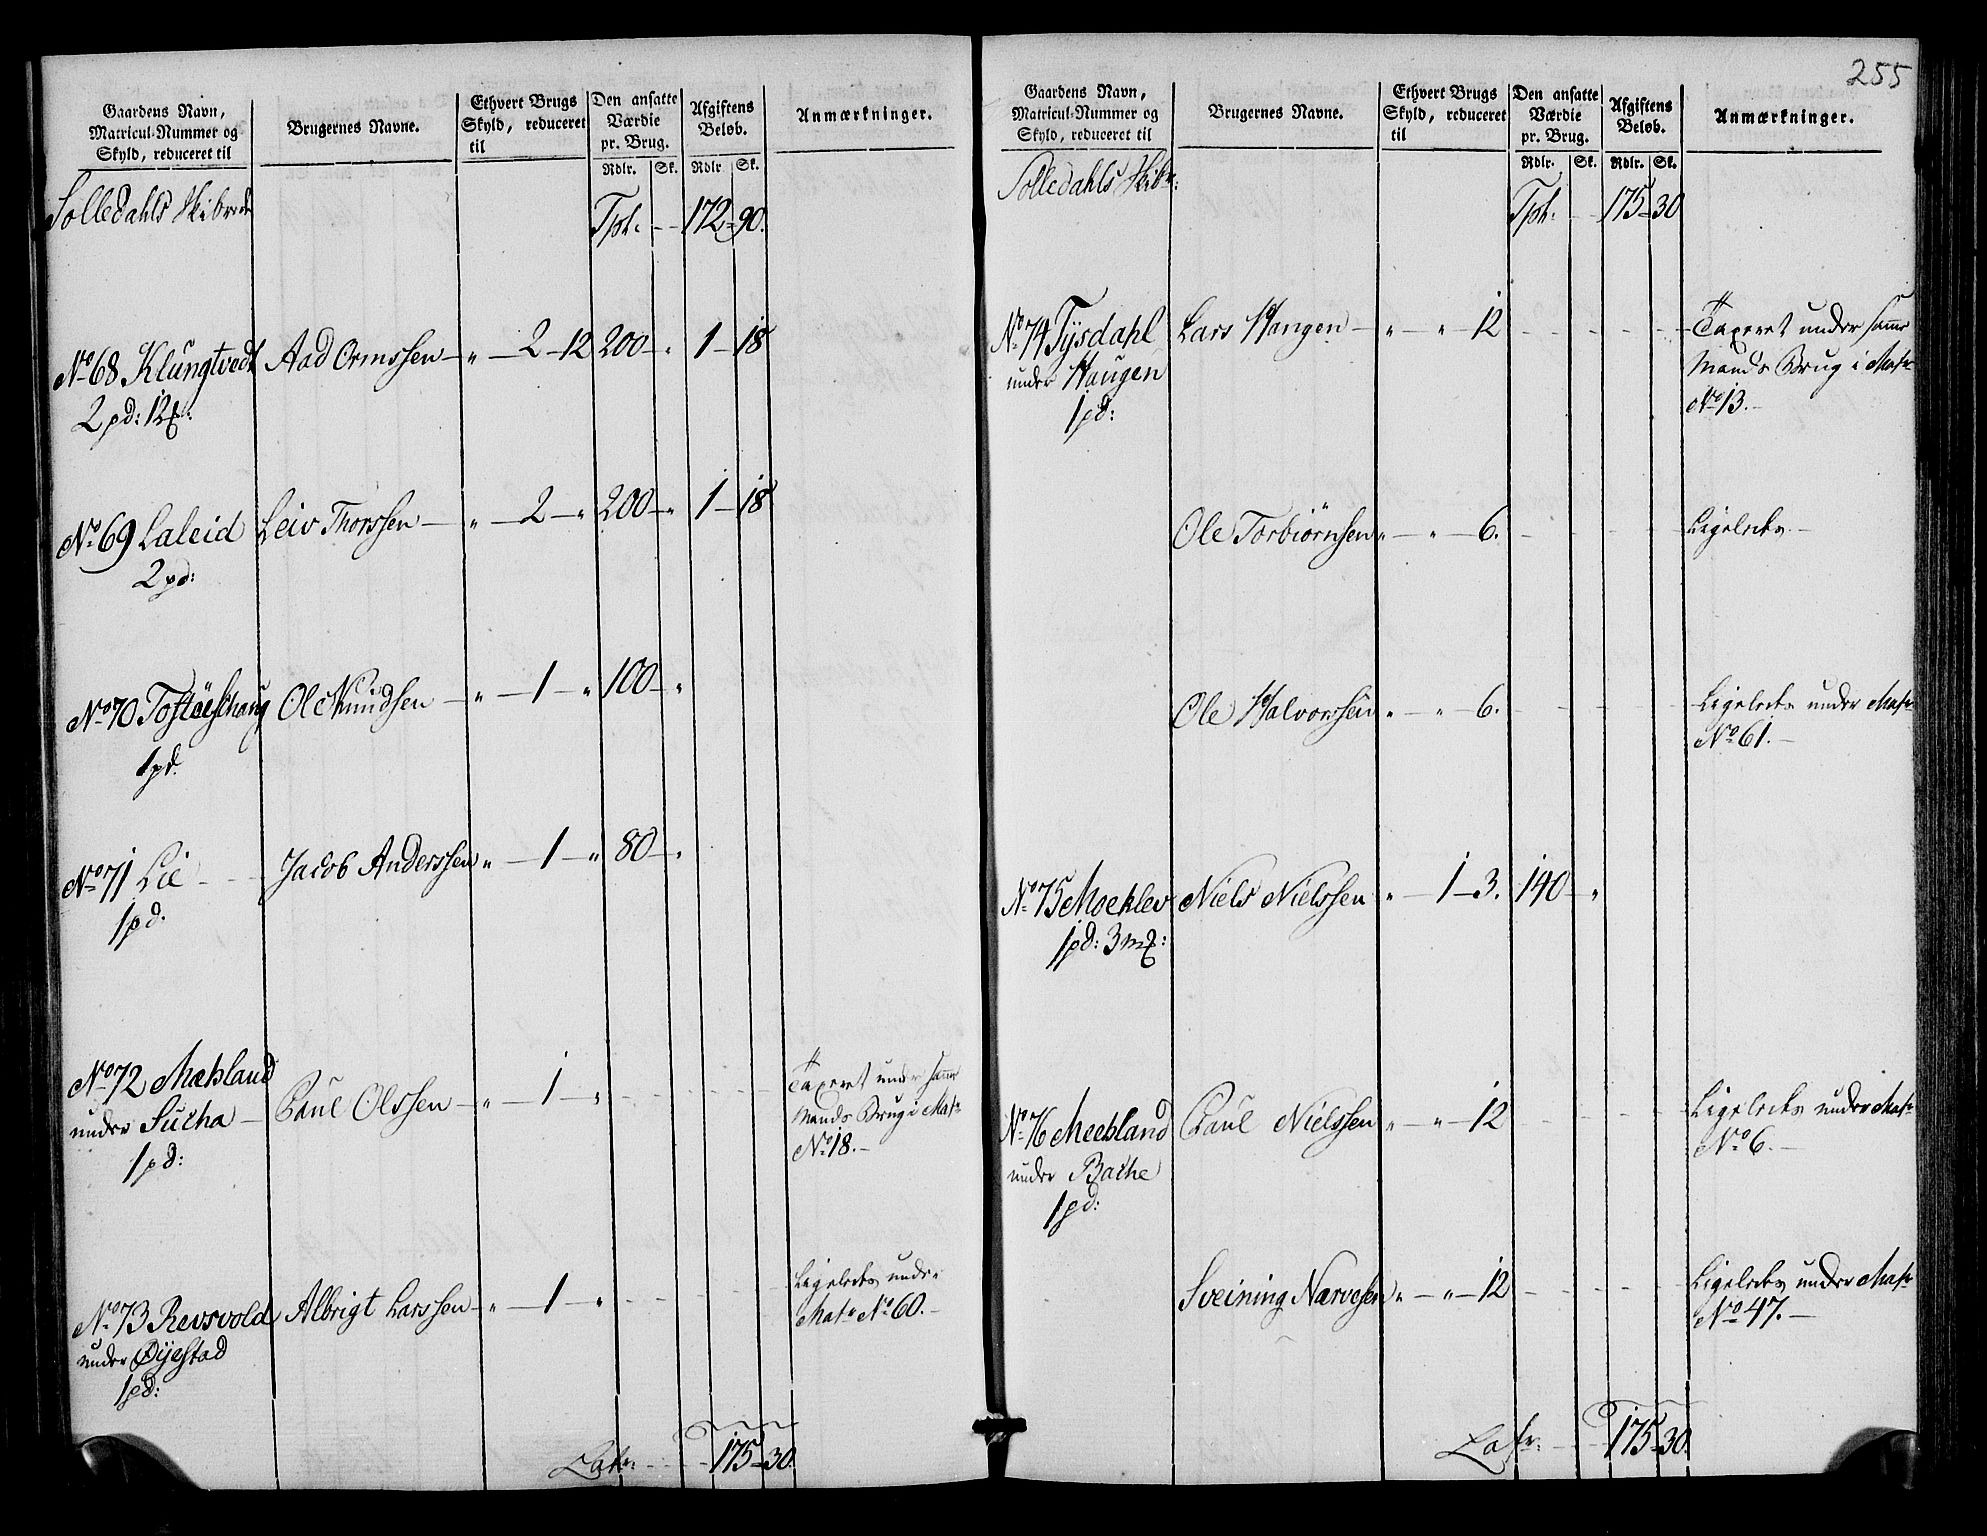 Gaardens Navn,
Matricul-Nummer og
Skyld, reduceret til
Brugernes Navne.
Ethvert Brugs
Skyld, reduceret
til
Den ansatte
Værdie
pr. Brug.
Rdlr. Sk.
Afgiftens
Beløb.
Rdlr Sk.
Anmærkninger.
Solledahls Skibrede
Tpt. 172-90.
No 68 Klungtvedt Aad Ormssen " 2-12 200 " 1-18
2 pd: 12
No 69 Laleid Leiv Thorssen " 2 " 200 " 1-18
2 pd:
No 70 Tostöeshaug Ole Knudsen " 1 " 100 "
1 pd.
No 71 Lie Jacob Anderssen " 1 " 80 "
1 pd.
No 72 Mæbland Paul Olssen " 1 " Taxeret under samme
under Sucha Mands Brug i Matr
1 pd: No 18.
No 73 Revsvold Albrigt Larssen " 1 " Ligeledes under
under Øyestad Matr No 60.
1 pd:
Latr. 175-30.
255
Gaardens Navn,
Matricul-Nummer og
Skyld, reduceret til
Brugernes Navne.
Ethvert Brugs
Skyld, reduceret
til
Den ansatte
Værdie
pr. Brug.
Rdlr. Sk.
Afgiftens
Beløb.
Rdlr. Sk.
Anmærkninger.
Solledahls Skibr:
Tpt. 175-30
No 74 Tÿsdahl Lars Haugen " " 12 Taxeret under samme
under Haugen Mands Brug i Matr
1 pd: No 13.
Ole Torbiörnsen " " 6. Ligeledes
Ole Halvorssen " " 6. Ligeledes under Matr
No 61.
No 75 Moeklev Niels Nielssen " 1-3. 140 "
1 pd: 3 m
No 76 Meebland Paul Nielssen " " 12 Ligeledes under Matr
under Bache No 6.
1 pd:
Sveining Narvesen " " 12 Ligeledes under Matr
No 47.
Latr. 175-30.